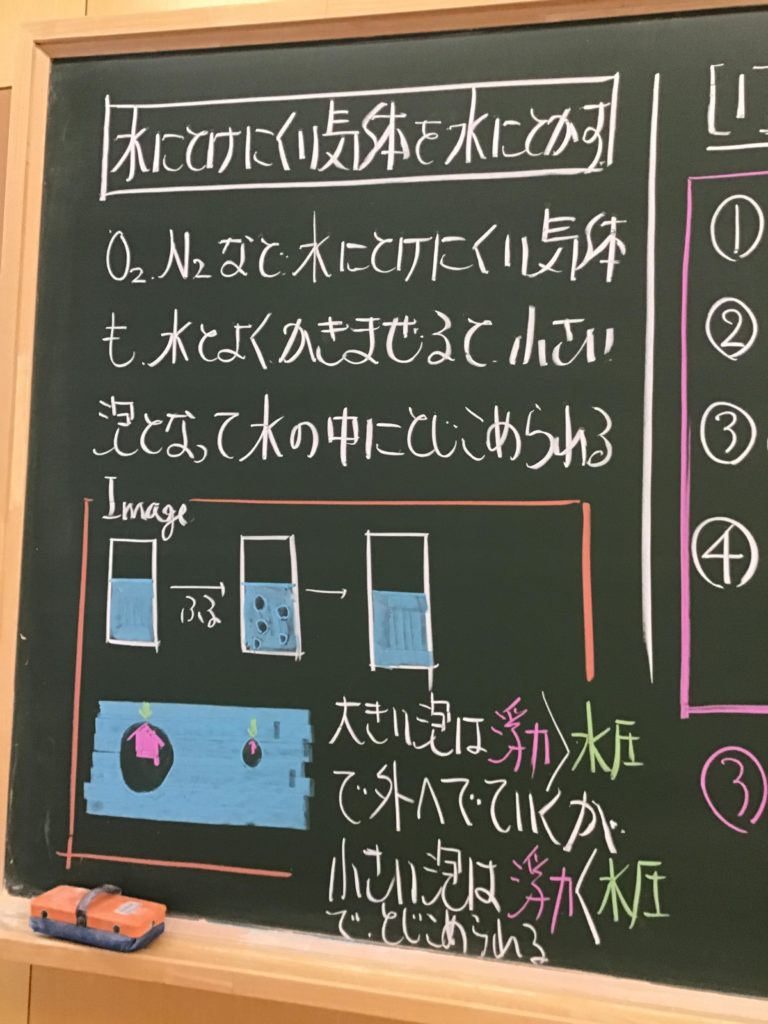 水にとけにくい気体を水にとかす
O₂.N₂など.水にとけにくい気体
も.水とよくかきまぜると.小さい
泡となって水の中にとじこめられる
Image
ふる
大きい泡は浮力>水圧
で外へでていくが.
小さい泡は浮力<水圧
で.とじこめられる
①
②
③
④
③